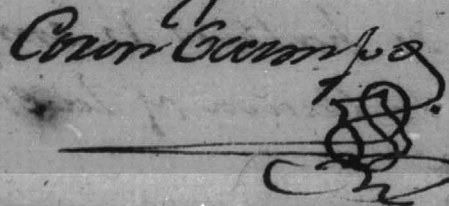 Coron Ocampos